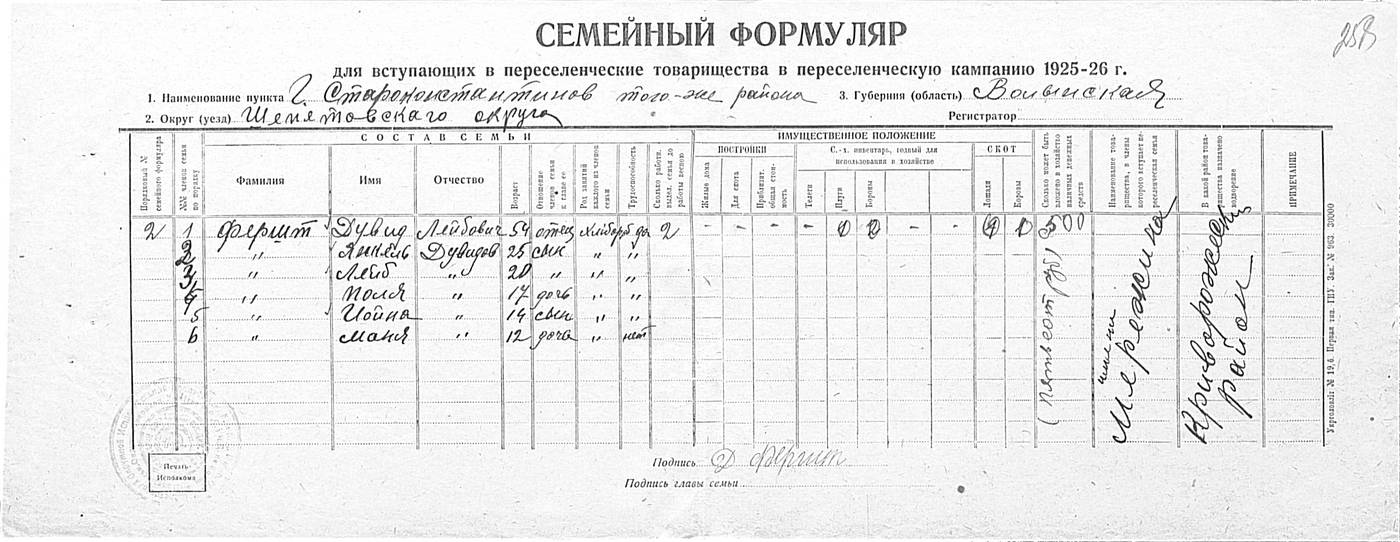 258
СЕМЕЙНЫЙ ФОРМУЛЯР
для вступающих в переселенческие товарищества в переселенческую кампанию 1925-26 г.
1. Наименование пункта Г. Староконстантинов того-же района 3. Губерния (область) Волынская
2. Округ (уезд) Шепетовскаго округа Регистратор
СОСТАВ СЕМЬИ
ИМУЩЕСТВЕННОЕ ПОЛОЖЕНИЕ
ПОСТРОЙКИ
С.-х. инвентарь, годный для использования в хозяйстве
СКОТ
Порядковый № семейного формуляра
№№ членов семьи по порядку
Фамилия
Имя
Отчество
Возраст
Отношение членов семьи к главе ее
Род занятий каждого из членов семьи
Трудоспособность
Сколько работн. выдел. семья до работы весною
Жилые дома
Для скота
Приблизит. общая стоимость
Телеги
Плуги
Бороны
Лошади
Коровы
Сколько может быть вложено в хозяйство наличных денежных средств
Наименование товарищества, в члены которого вступает переселенческая семья
В каком районе товарищества назначено водворение
ПРИМЕЧАНИЕ
2 1 Фершт Дувид Лейбович 54 отец хлебороб да 2 - - - - 0 0 - - 0 0 500
2 " Янкель Дувидов 25 сын " "
3 " Лейб " 20 " " "
4 " Поля " 17 дочь " "
5 " Иойна " 14 сын " "
6 " Маня " 12 дочь " нет
(пятьсот руб)
имени Мережина
Криворожский район
Печать Исполкома
Подпись Д Фершт
Подпись главы семьи
Укрголовліт № 19,6. Первая тип. ГПУ. Зак. № 963. 30000